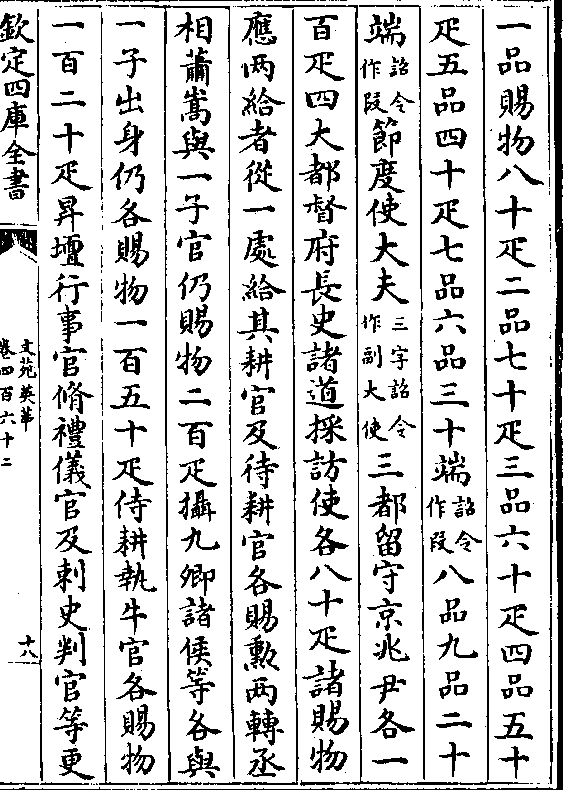 一品賜物八十疋二品七十疋三品六十疋四品五十
疋五品四十疋七品六品三十端詔令作段八品九品二十
端詔令作段節度使大夫三字詔令作副大使三都留守京兆尹各一
百疋四大都督府長史諸道採訪使各八十疋諸賜物
應两給者從一處給其耕官及待耕官各賜勲两轉丞
相蕭嵩與一子官仍賜物二百疋攝九卿諸侯等各與
一子出身仍各賜物一百五十疋侍耕執牛官各賜物
一百二十疋昇壇行事官脩禮儀官及刺史判官等更
欽定四庫全書
文苑英華
卷四百六十二
十八